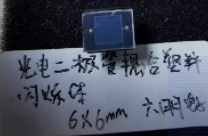 光电二极管耦合塑料
闪烁体
6×6mm 六明熙